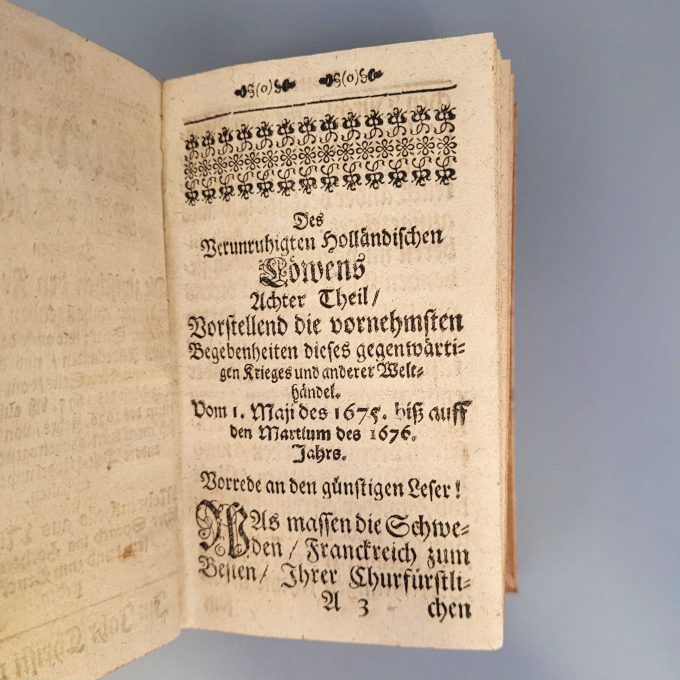 §(o)§ §(o)§
Des
Verunruhigten Holländischen
Löwens
Achter Theil/
Vorstellend die vornehmsten
Begebenheiten dieses gegenwärti-
gen Krieges und anderer Welt-
händel.
Vom 1. Maji des 1675. biß auff
den Martium des 1676.
Jahrs.
Vorrede an den günstigen Leser!
WAs massen die Schwe-
den/ Franckreich zum
Besten/ Ihrer Churfürstli-
A 3 chen